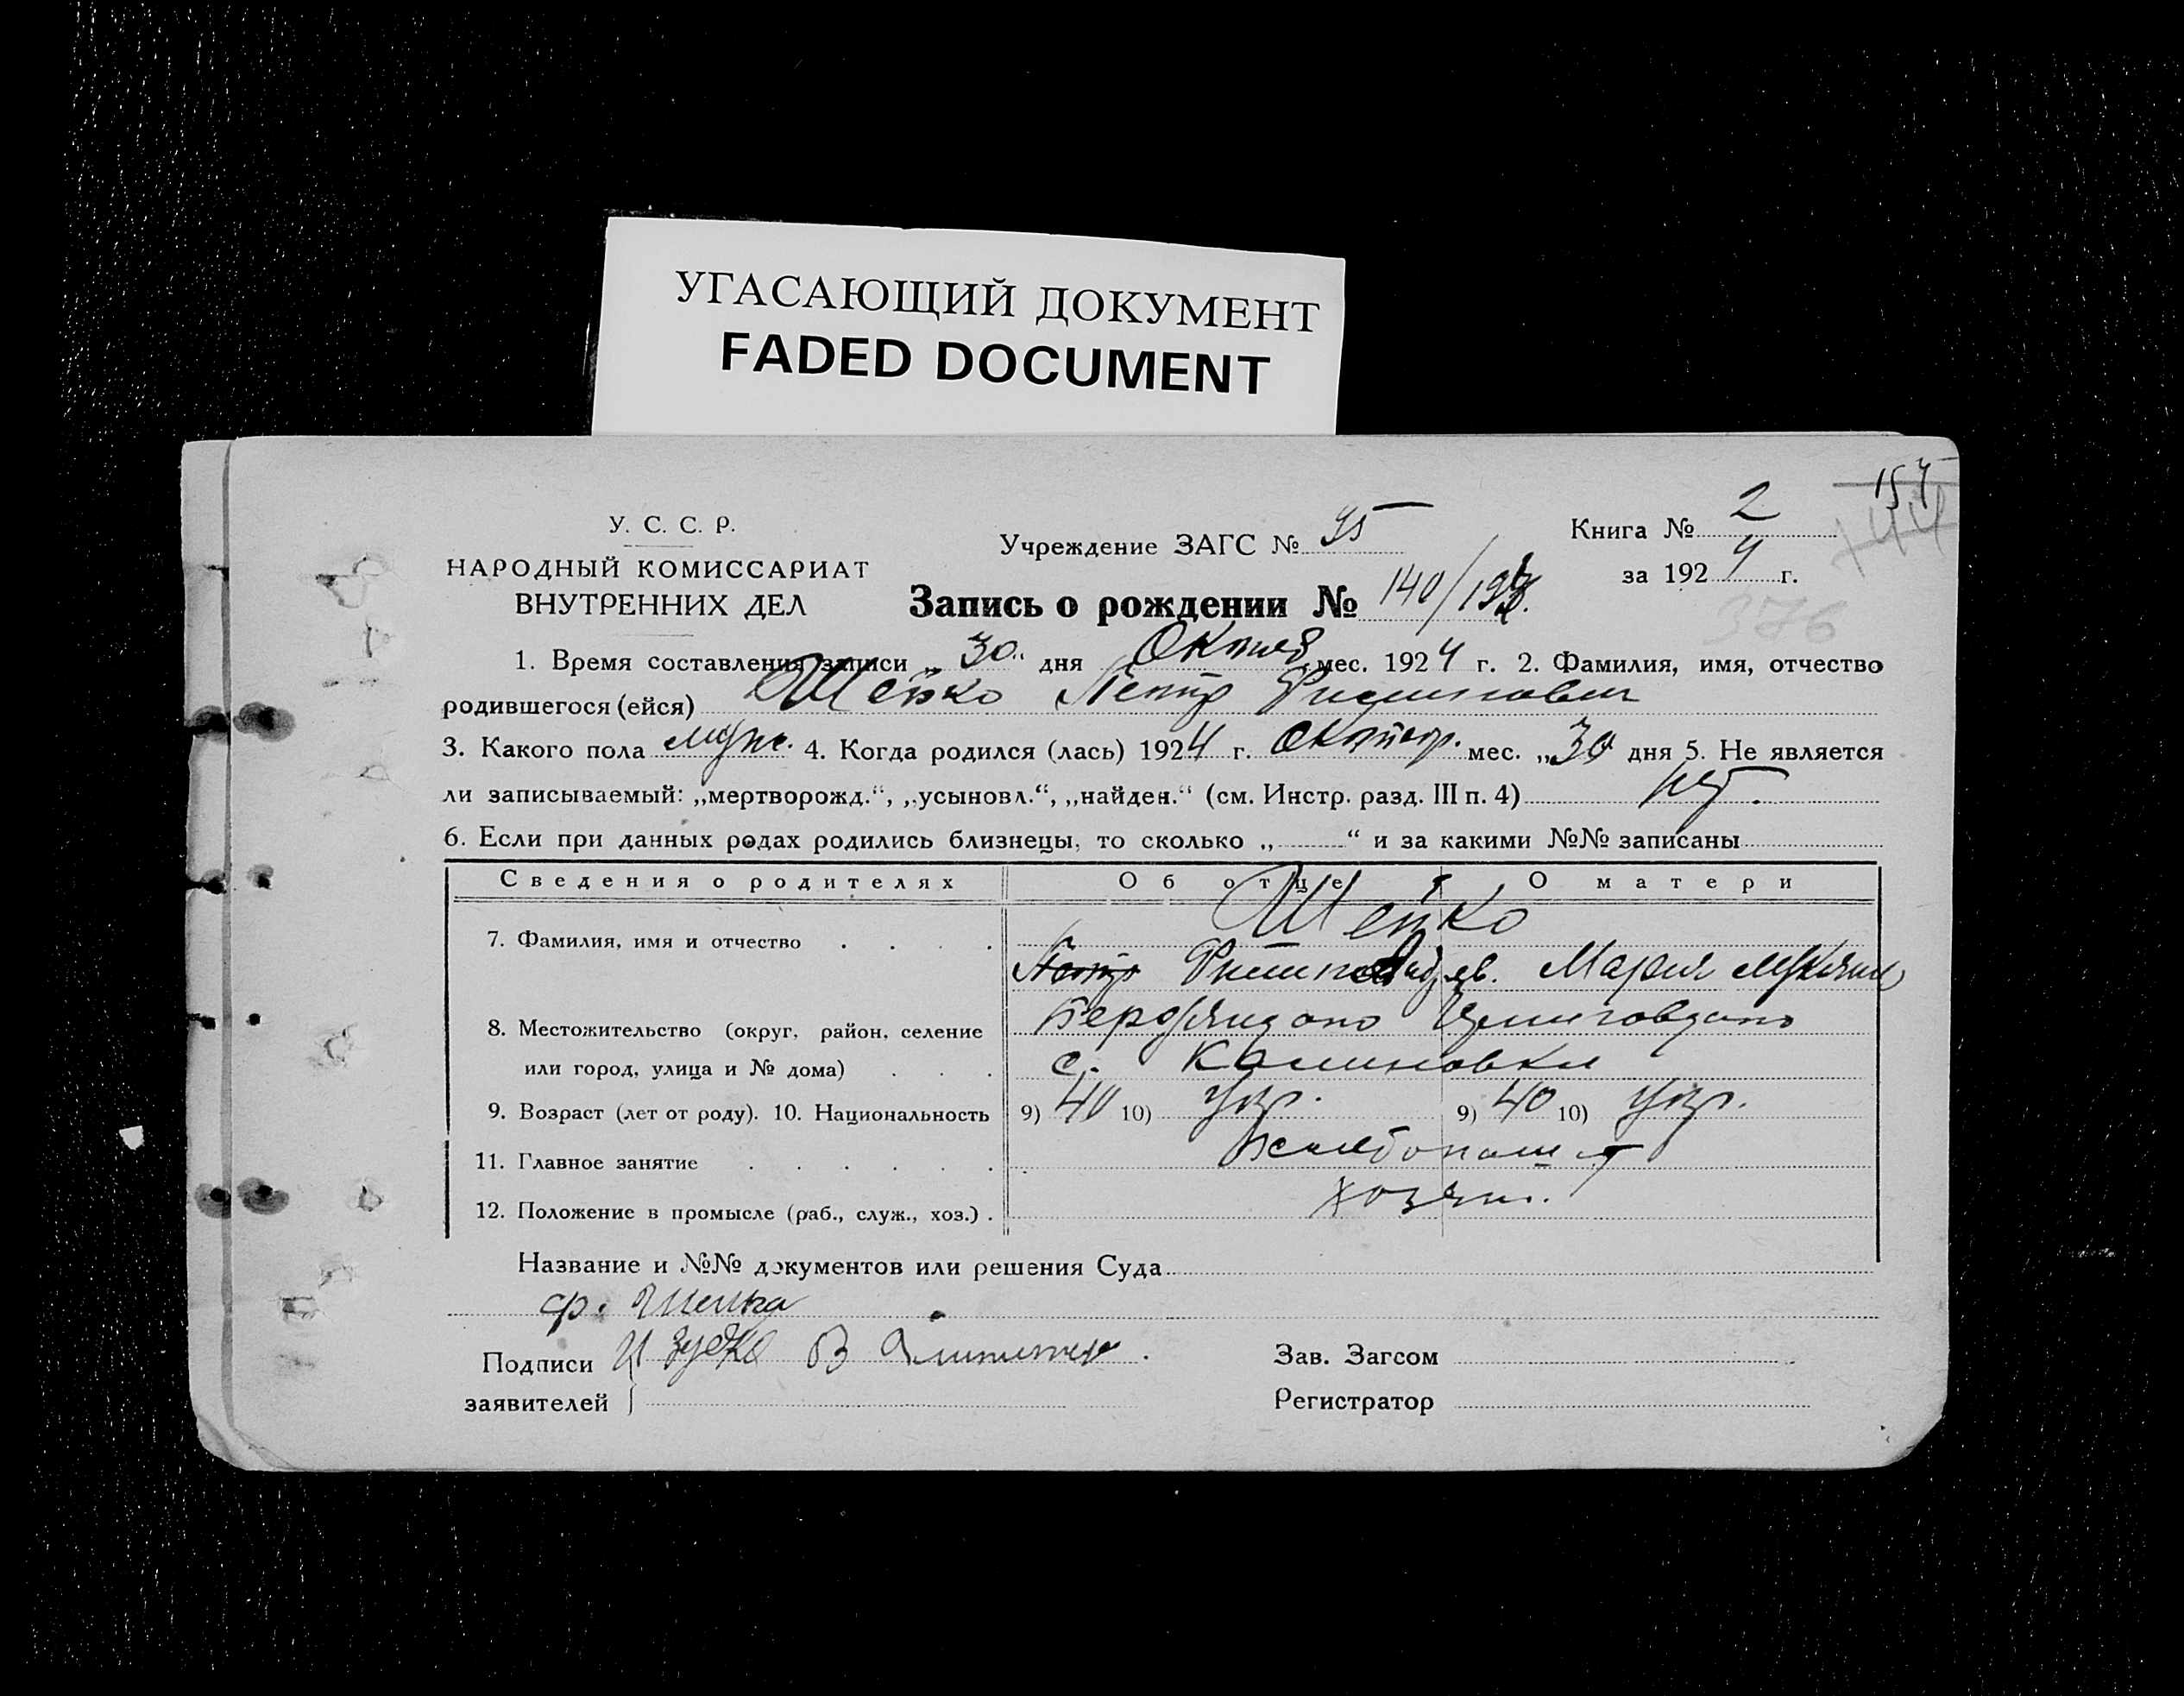 УГАСАЮЩИЙ ДОКУМЕНТ
FADED DOCUMENT
157
У. С. С. Р.
НАРОДНЫЙ КОМИССАРИАТ
ВНУТРЕННИХ ДЕЛ
Учреждение ЗАГС № 95
Книга № 2
за 1924 г.
Запись о рождении № 140/
376
1. Время составления записи „30“ дня мес. 1924 г. 2. Фамилия, имя, отчество
родившегося (ейся) Шейко Петр
3. Какого пола муж. 4. Когда родился (лась) 1924 г. Октябр. мес. „30 дня 5. Не является
ли записываемый: „мертворожд.“, „усыновл.“, „найден.“ (см. Инстр. разд. III п. 4) нет.
6. Если при данных родах родились близнецы, то сколько „ “ и за какими №№ записаны
Сведения о родителях Об отце О матери
Шейко
7. Фамилия, имя и отчество . . . .
Мария
8. Местожительство (округ, район, селение
или город, улица и № дома) . . . с. Калиновки
9. Возраст (лет от роду). 10. Национальность 9) 40 10) Укр. 9) 40 10) Укр.
11. Главное занятие . . . . . . Хлебопаш
12. Положение в промысле (раб., служ., хоз.) . хозяин.
Название и №№ документов или решения Суда
Подписи
заявителей
Зав. Загсом
Регистратор